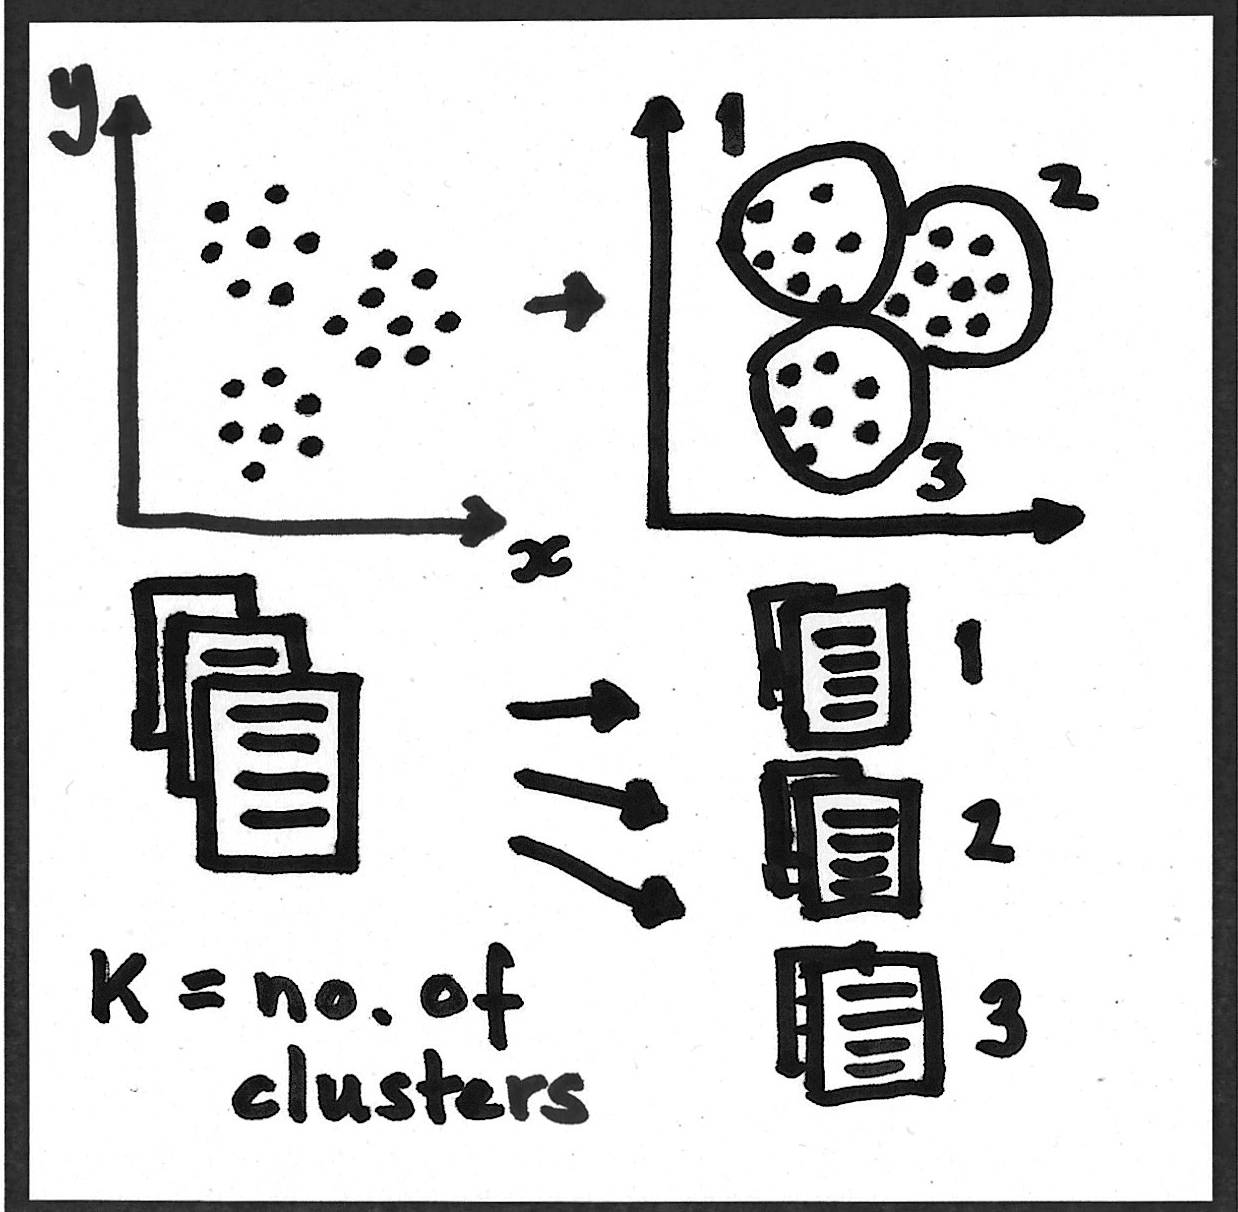 y
1
2
3
x
1
2
3
K = no. of
clusters